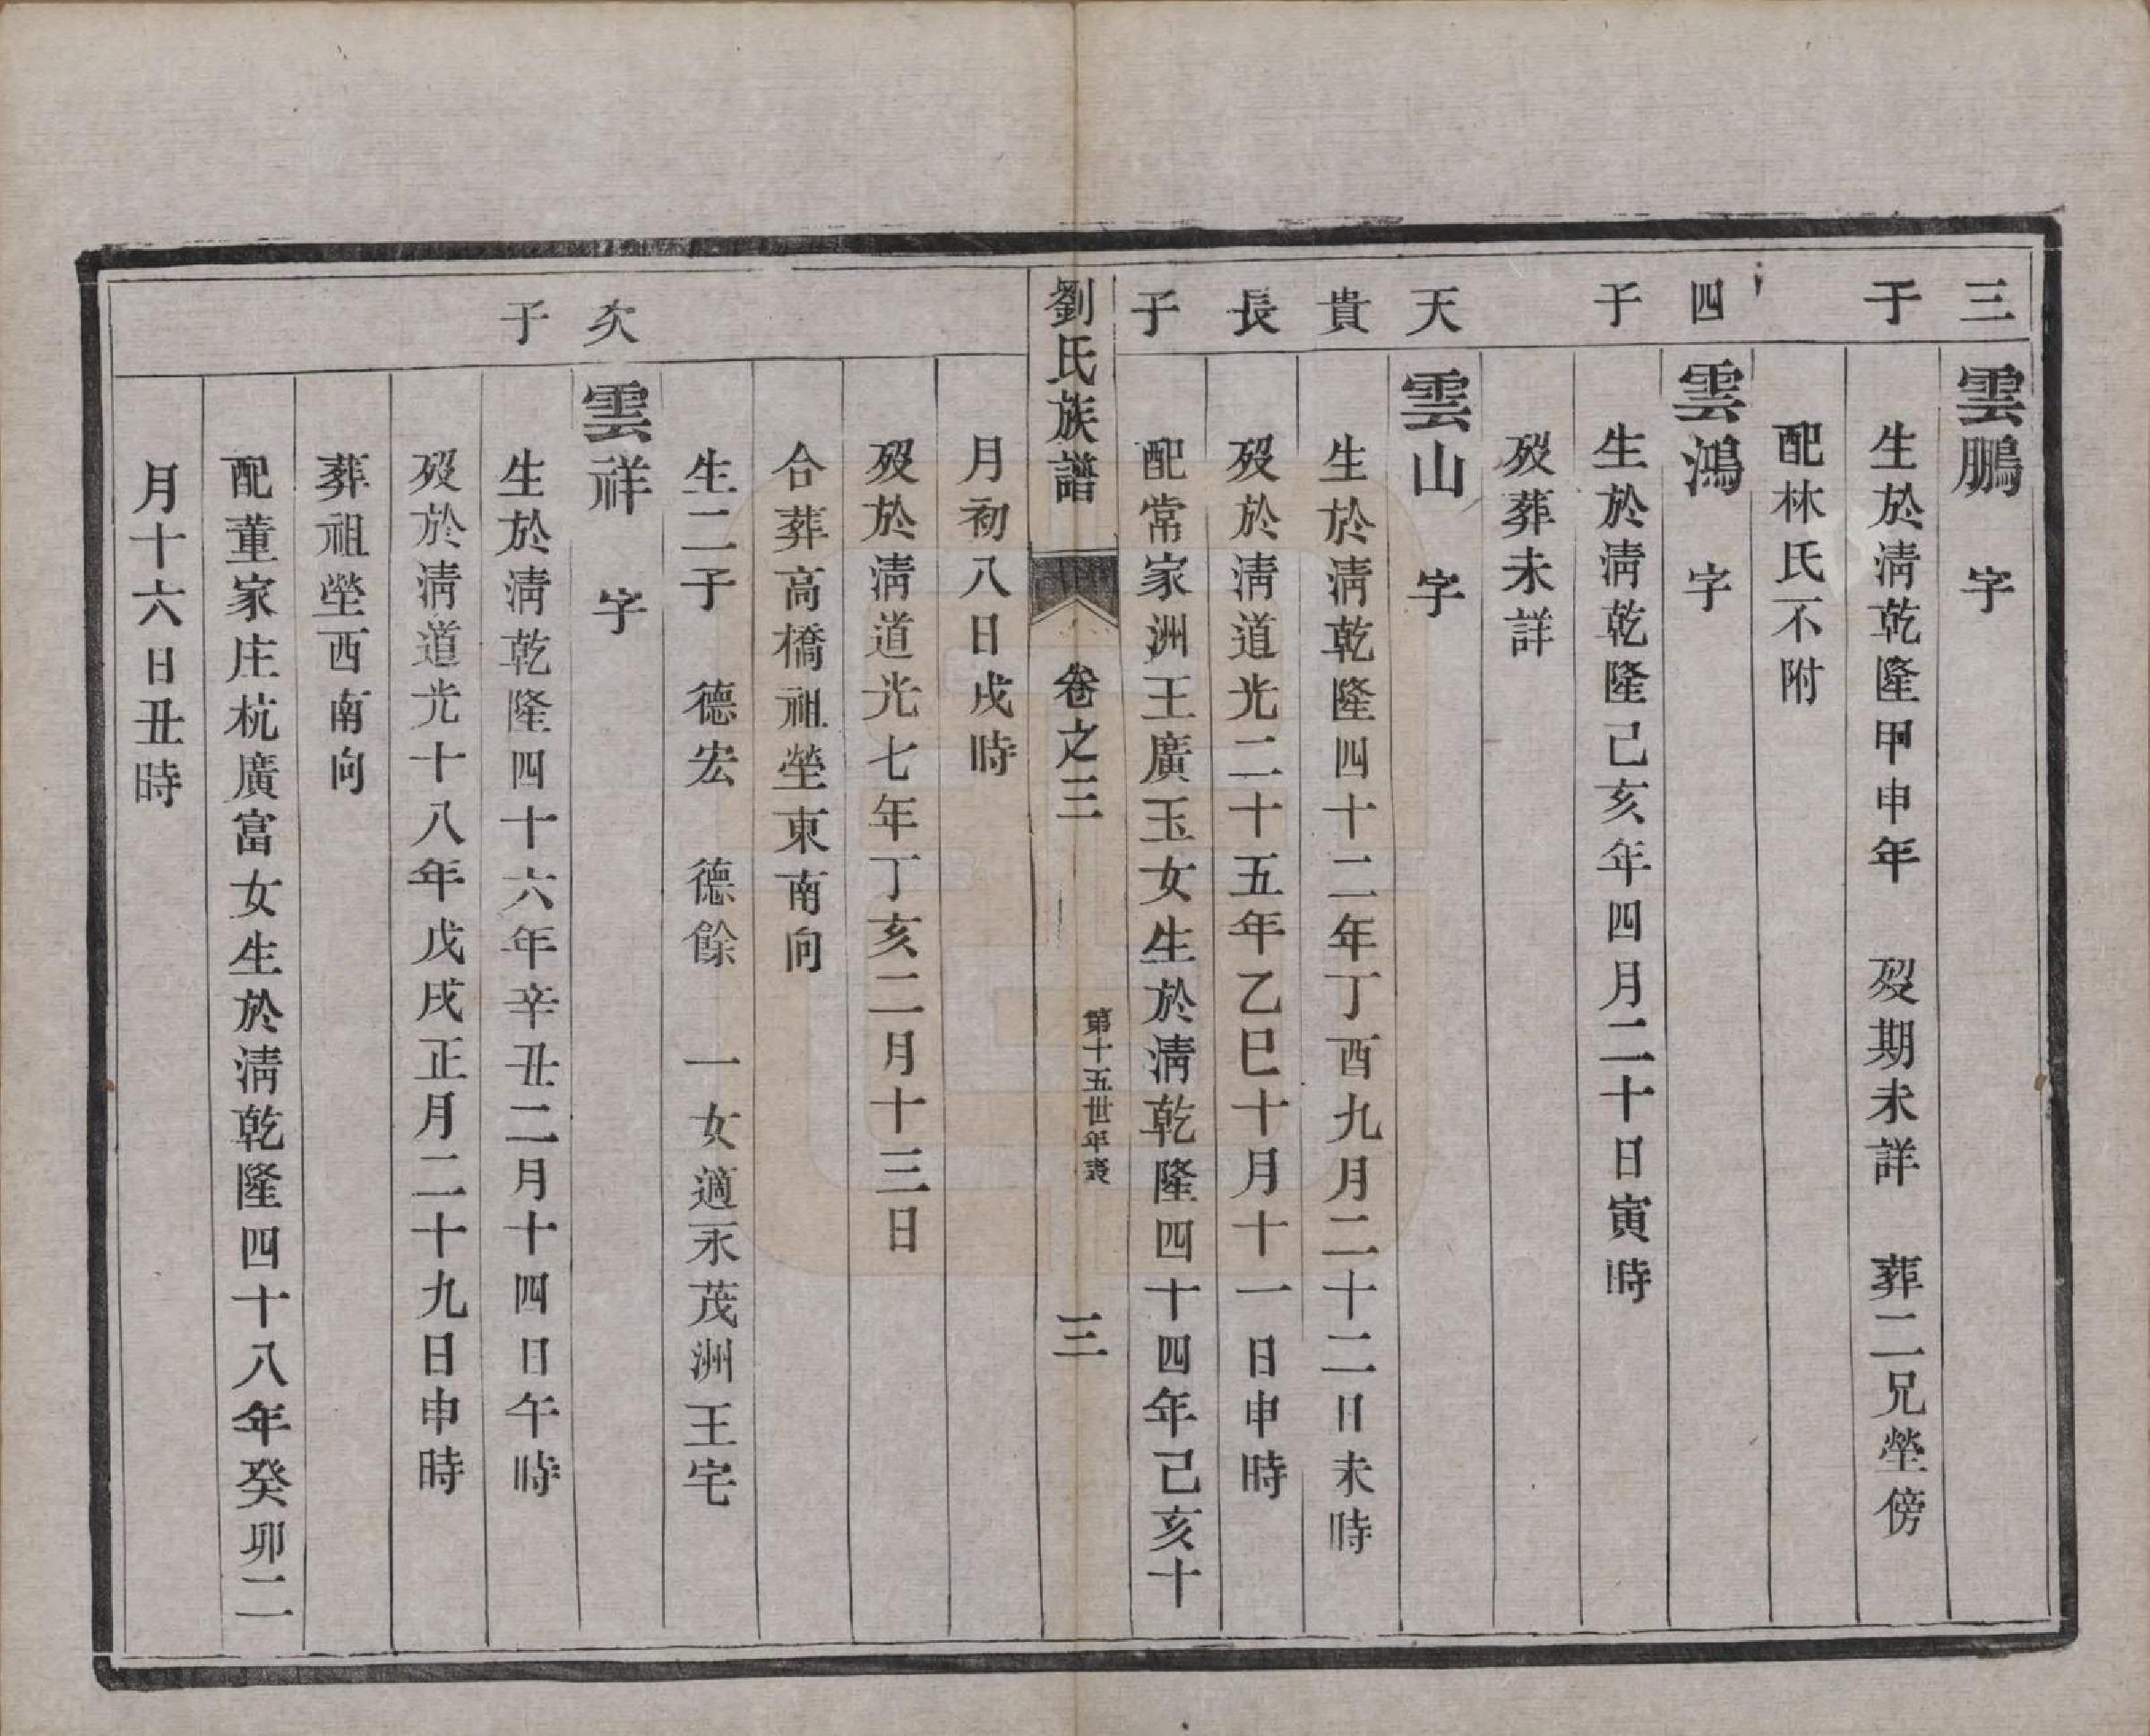 三子
雲鵬　字
生於清乾隆甲申年　歿期未詳　葬二兄塋傍
配林氏不附
四子
雲鴻　字
生於清乾隆己亥年四月二十日寅時
歿葬未詳
天貴長子
雲山　字
生於清乾隆四十二年丁酉九月二十二日未時
歿於清道光二十五年乙巳十月十一日申時
配常家洲王廣玉女生於清乾隆四十四年己亥十
劉氏族譜　卷之三　第十五世年表　三
月初八日戌時
歿於清道光七年丁亥二月十三日
合葬高橋祖塋東南向
生二子　德宏　德餘　一女適永茂洲王宅
次子
雲祥　字
生於清乾隆四十六年辛丑二月十四日午時
歿於清道光十八年戊戌正月二十九日申時
葬祖塋西南向
配董家庄杭廣富女生於清乾隆四十八年癸卯二
月十六日丑時